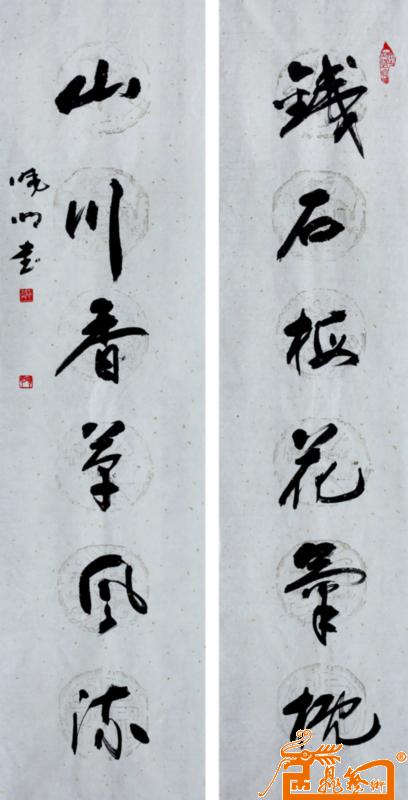 鐵石梅花氣概
山川香草風流
曉明書